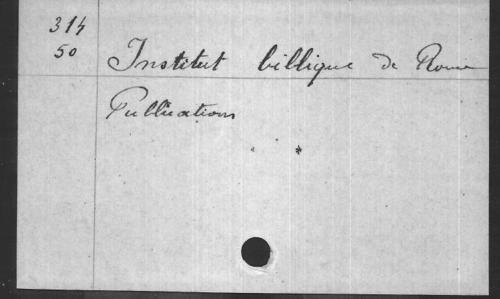 314
50
Institut biblique de Rome
Publications
*